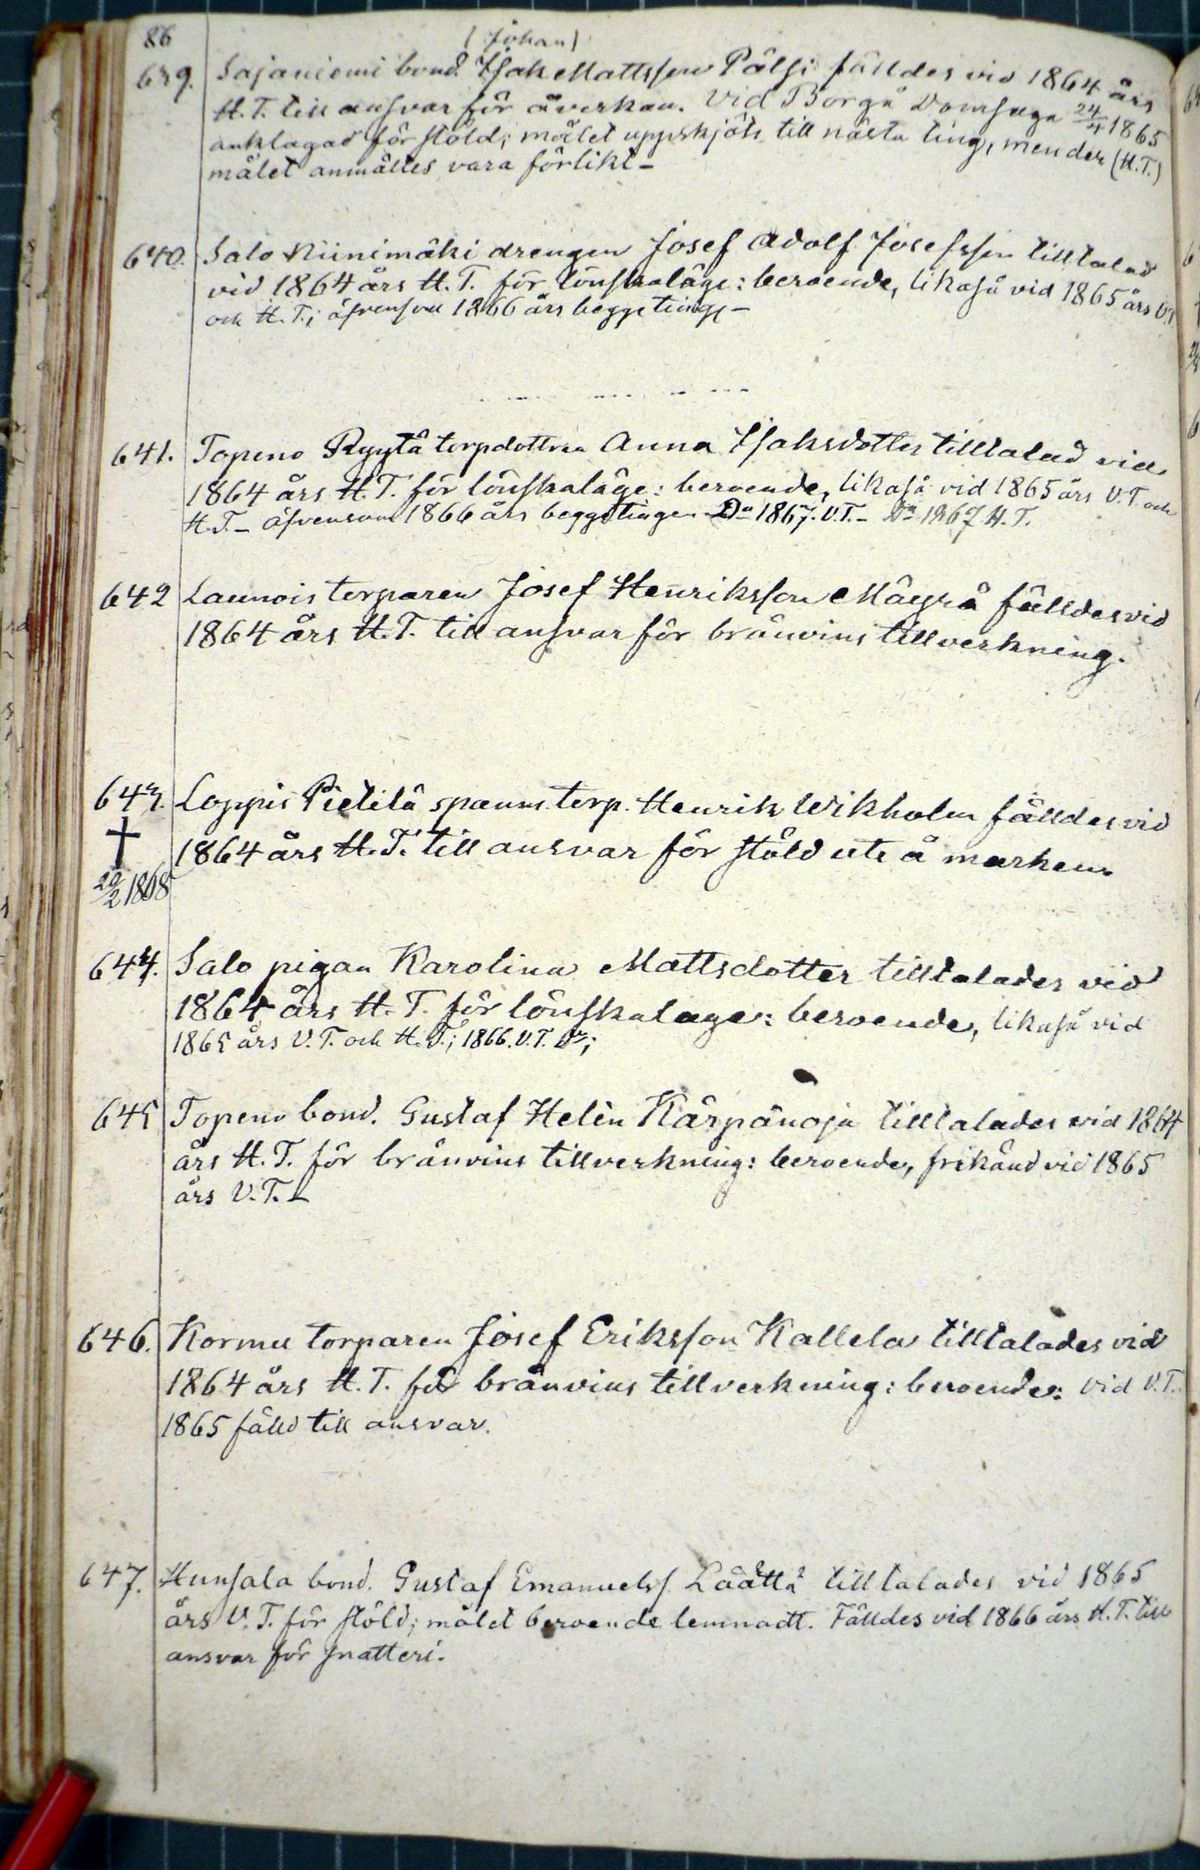 86
(Johan)
639. Sajaniemi bond. Isak Mattsson Pälsi fälldes vid 1864 års
H. T. till ansvar för åverkan. Vid Borgå Domsaga 24/4 1865
anklagad för stöld; målet uppskjöts till nästa ting, men der (H.T.)
målet anmältes vara förlikt –
640. Salo Niinimäki drengen Josef Adolf Josefsson tilltalad
vid 1864 års H. T. för lönskaläge: beroende, likaså vid 1865 års V.T.
och H. T.; äfvensom 1866 års begge ting –
641. Topeno Ryytä torpdottren Anna Isaksdotter tilltalad vid
1864 års H. T. för lönskaläge: beroende, likaså vid 1865 års V. T. och
H. T. – äfvensom 1866 års begge tingen Do 1867. V.T. – Do 1867 H. T.
642 Launois torparen Josef Henriksson Mäyrä fälldes vid
1864 års H. T. till ansvar för bränvins tillverkning.
643. Loppis Pietilä spanm. torp. Henrik Wikholm fälldes vid
† 1864 års H. T. till ansvar för stöld ute å marken.
20/2 1868
644. Salo pigan Karolina Mattsdotter tilltalades vid
1864 års H. T. för lönskalage: beroende, likaså vid
1865 års V. T. och H. T.; 1866. V. T. Do;
645 Topeno bond. Gustaf Helèn Kärpänoja tilltalades vid 1864
års H. T. för bränvins tillverkning: beroende, frikänd vid 1865
års V. T. –
646. Kormu torparen Josef Eriksson Kallela tilltalades vid
1864 års H. T. för bränvins tillverkning: beroende: vid V. T.
1865 fälld till ansvar.
647. Hunsala bond. Gustaf Emanuelss. Läättä tilltalades vid 1865
års V. T. för stöld; målet beroende lemnadt. Fälldes vid 1866 års H. T. till
ansvar för snatteri.